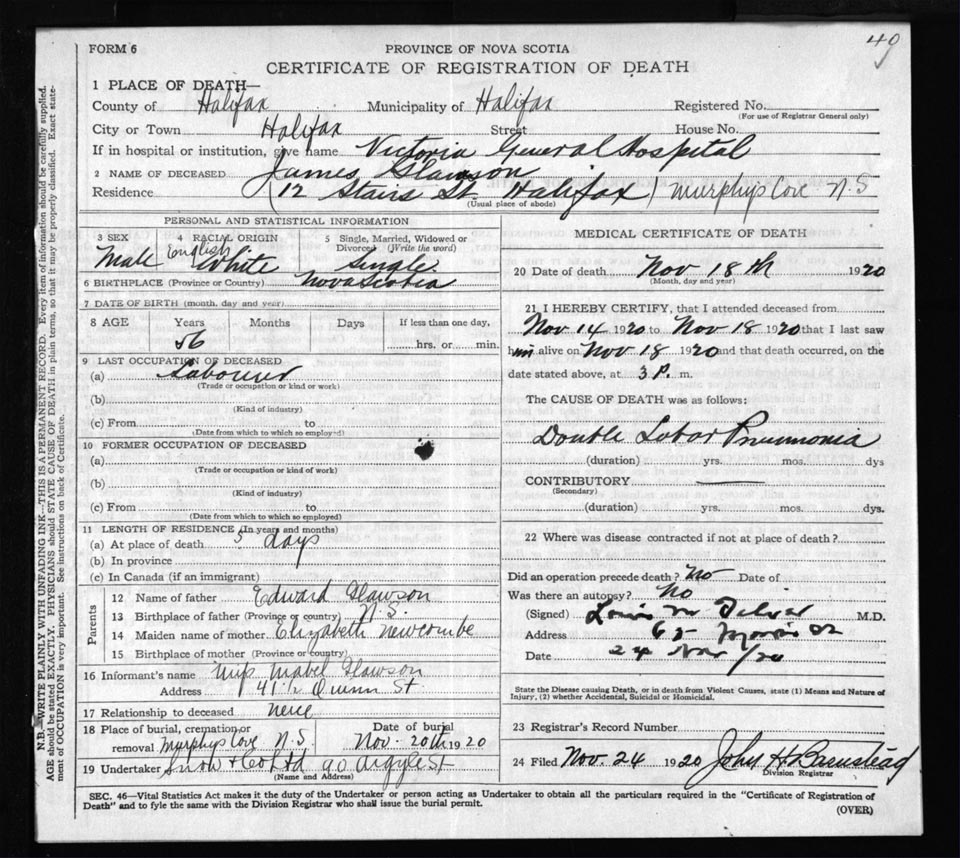 49
FORM 6
PROVINCE OF NOVA SCOTIA
CERTIFICATE OF REGISTRATION OF DEATH
1 PLACE OF DEATH—
County of Halifax Municipality of Halifax Registered No.
(For use of Registrar General only)
City or Town Halifax Street House No.
If in hospital or institution, give name Victoria General Hospital
2 NAME OF DECEASED James Glawson
Residence (12 Stairs St. Halifax) Murphys Cove N.S
(Usual place of abode)
PERSONAL AND STATISTICAL INFORMATION
3 SEX 4 RACIAL ORIGIN 5 Single, Married, Widowed or Divorced (Write the word)
Male English White Single
6 BIRTHPLACE (Province or Country) Nova Scotia
7 DATE OF BIRTH (month, day and year)
8 AGE Years Months Days If less than one day,
56 hrs. or min.
9 LAST OCCUPATION OF DECEASED
(a) Labourer
(Trade or occupation or kind or work)
(b)
(Kind of industry)
(c) From to
(Date from which to which so employed)
10 FORMER OCCUPATION OF DECEASED
(a)
(Trade or occupation or kind of work)
(b)
(Kind of industry)
(c) From to
(Date from which to which so employed)
11 LENGTH OF RESIDENCE (In years and months)
(a) At place of death 5 days
(b) In province
(c) In Canada (if an immigrant)
Parents
12 Name of father Edward Glawson
13 Birthplace of father (Province or country) N.S.
14 Maiden name of mother Elizabeth Newcombe
15 Birthplace of mother (Province or country)
16 Informant's name Miss Mabel Glawson
Address 41½ Quinn St.
17 Relationship to deceased neice
18 Place of burial, cremation or removal Murphys Cove N.S. Date of burial Nov. 20th 1920
19 Undertaker Snow & Co Ltd 90 Argyle St
(Name and Address)
MEDICAL CERTIFICATE OF DEATH
20 Date of death Nov 18th 1920
(Month, day and year)
21 I HEREBY CERTIFY, that I attended deceased from
Nov 14 1920 to Nov 18 1920 that I last saw
him alive on Nov 18 1920 and that death occurred, on the
date stated above, at 3 P. m.
The CAUSE OF DEATH was as follows:
Double Lobar Pneumonia
(duration) yrs. mos. dys
CONTRIBUTORY —
(Secondary)
(duration) yrs. mos. dys.
22 Where was disease contracted if not at place of death?
Did an operation precede death? No Date of
Was there an autopsy? No
(Signed) Louis M M.D.
Address 65 Morris St
Date 24 Nov/20
State the Disease causing Death, or in death from Violent Causes, state (1) Means and Nature of
Injury, (2) whether Accidental, Suicidal or Homicidal.
23 Registrar's Record Number
24 Filed Nov. 24 1920 John H Barnstead
Division Registrar
SEC. 46—Vital Statistics Act makes it the duty of the Undertaker or person acting as Undertaker to obtain all the particulars required in the "Certificate of Registration of
Death" and to fyle the same with the Division Registrar who shall issue the burial permit.
(OVER)
N.B.—WRITE PLAINLY WITH UNFADING INK—THIS IS A PERMANENT RECORD. Every item of information should be carefully supplied.
AGE should be stated EXACTLY. PHYSICIANS should STATE CAUSE OF DEATH in plain terms, so that it may be properly classified. Exact state-
ment of OCCUPATION is very important. See instructions on back of Certificate.